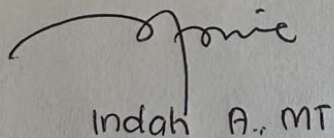 Indah A., MT